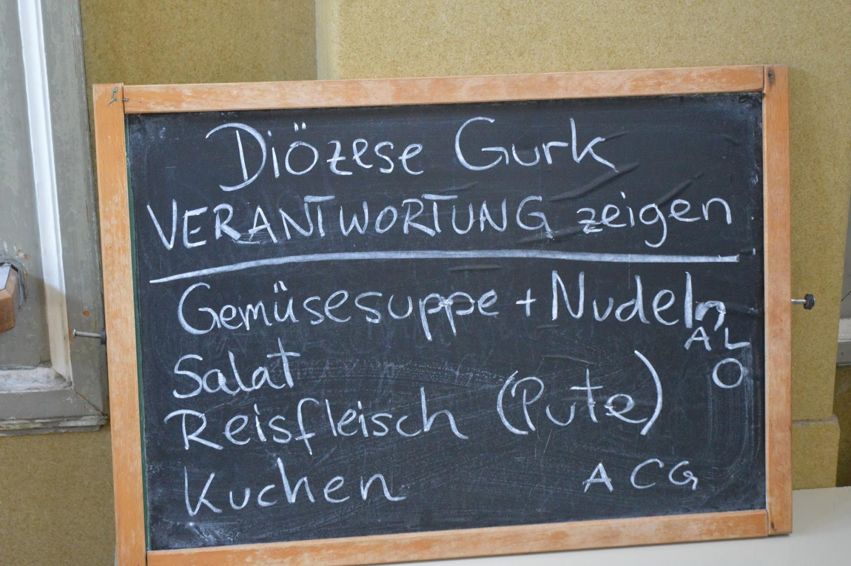 Diözese Gurk
VERANTWORTUNG zeigen
Gemüsesuppe + Nudeln
A L
O
Salat
Reisfleisch (Pute)
Kuchen A C G